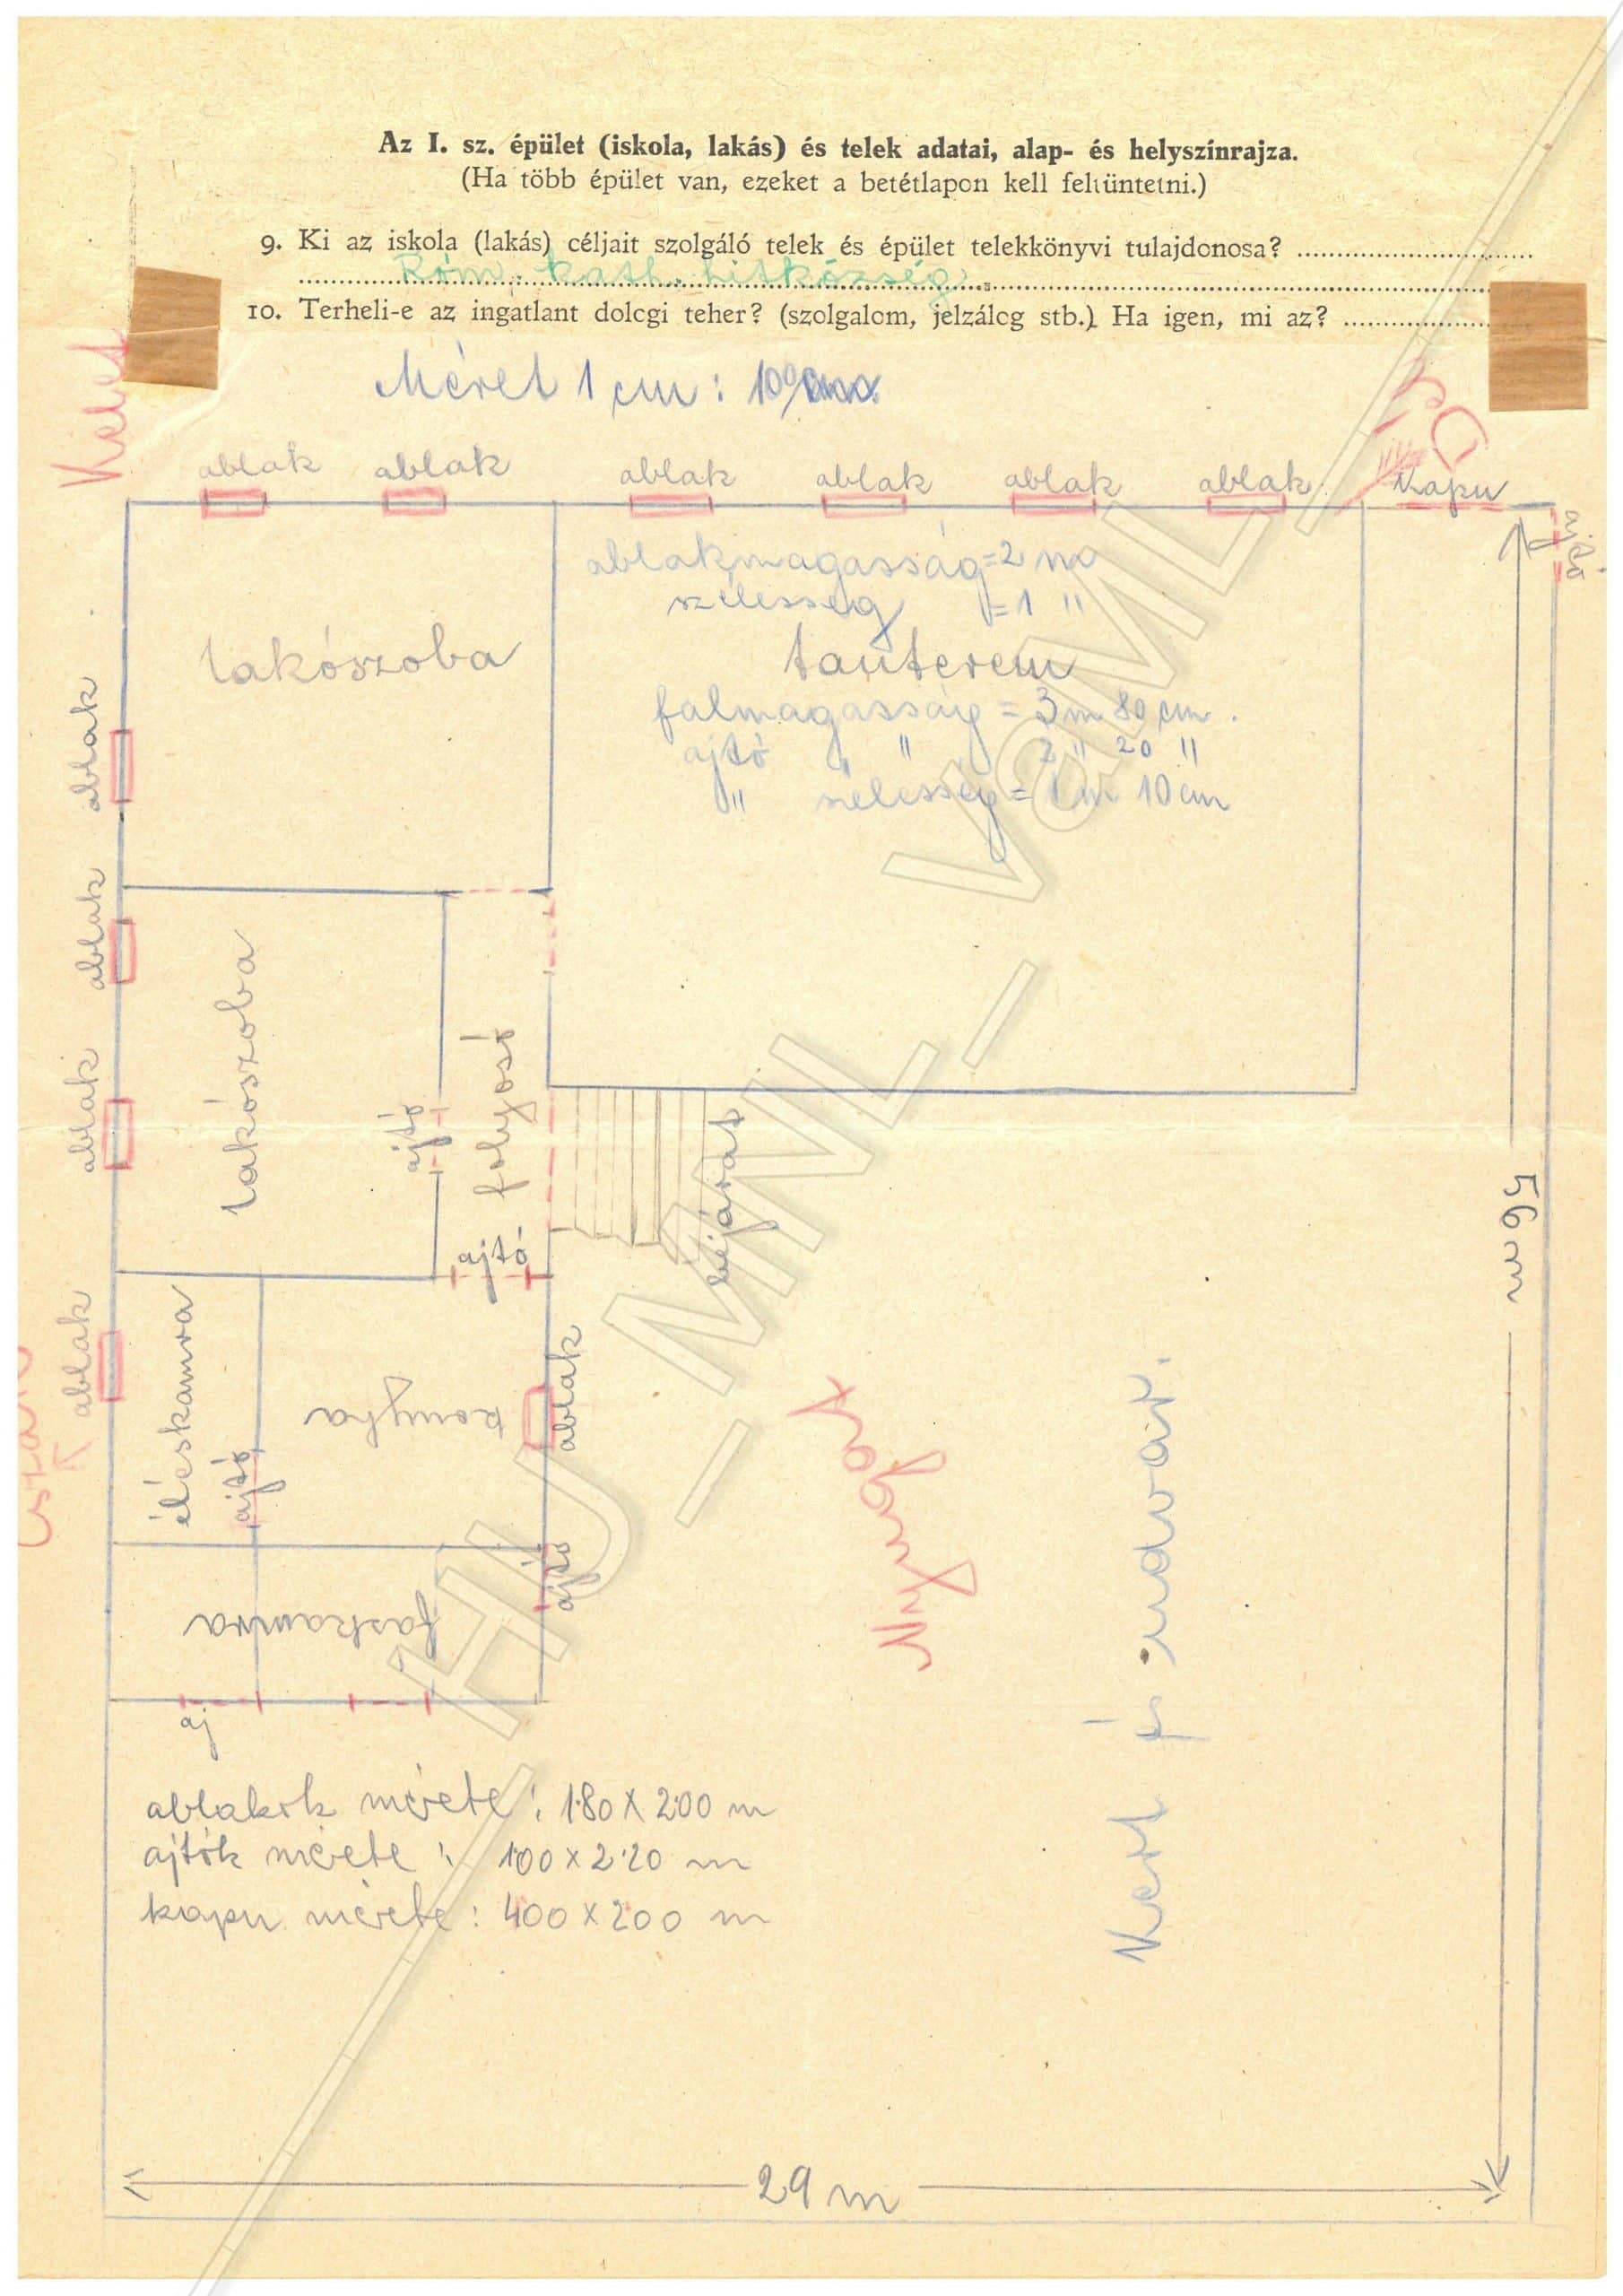 Az I. sz. épület (iskola, lakás) és telek adatai, alap- és helyszínrajza.
(Ha több épület van, ezeket a betétlapon kell feltüntetni.)
9. Ki az iskola (lakás) céljait szolgáló telek és épület telekkönyvi tulajdonosa?
Róm. kath. hitközség
10. Terheli-e az ingatlant dologi teher? (szolgalom, jelzálog stb.) Ha igen, mi az?
Kelet
Méret 1 cm : 100
ablak ablak ablak ablak ablak ablak kapu
ajtó
ablakmagasság = 2 m
szélesség = 1 "
lakószoba
tanterem
falmagasság = 3 m 80 cm.
ajtó " 2 " 20 "
" szélesség = 1 m 10 cm
ablak
ablak
lakószoba
folyosó
ajtó
ablak
bejárat
ajtó
56 m
ablak
éléskamra
ajtó
konyha
ablak
Nyugat
Kert és udvar.
ajtó
faskamra
aj
ablakok mérete : 1·80 x 2·00 m
ajtók mérete : 1·00 x 2·20 m
kapu mérete : 400 x 200 m
29 m
HU_MNL_VaML_